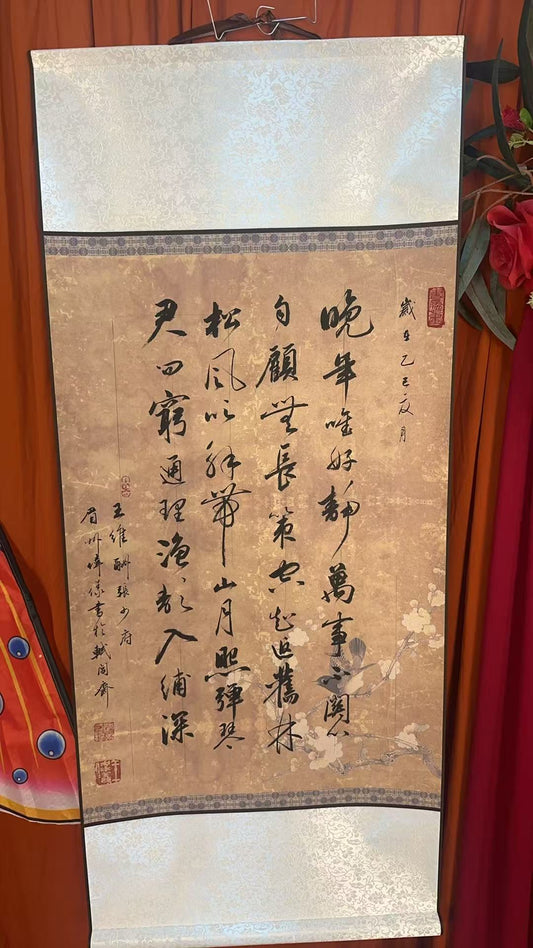 歲在乙巳夏月
晚年唯好靜萬事不關心
自顧無長策空知返舊林
松風吹解帶山月照彈琴
君問窮通理漁歌入浦深
王維酬張少府
眉州書於軾同齋